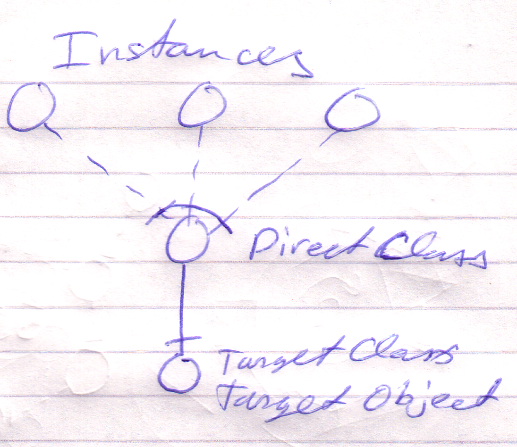 Instances
Direct Class
Target Class
Target Object